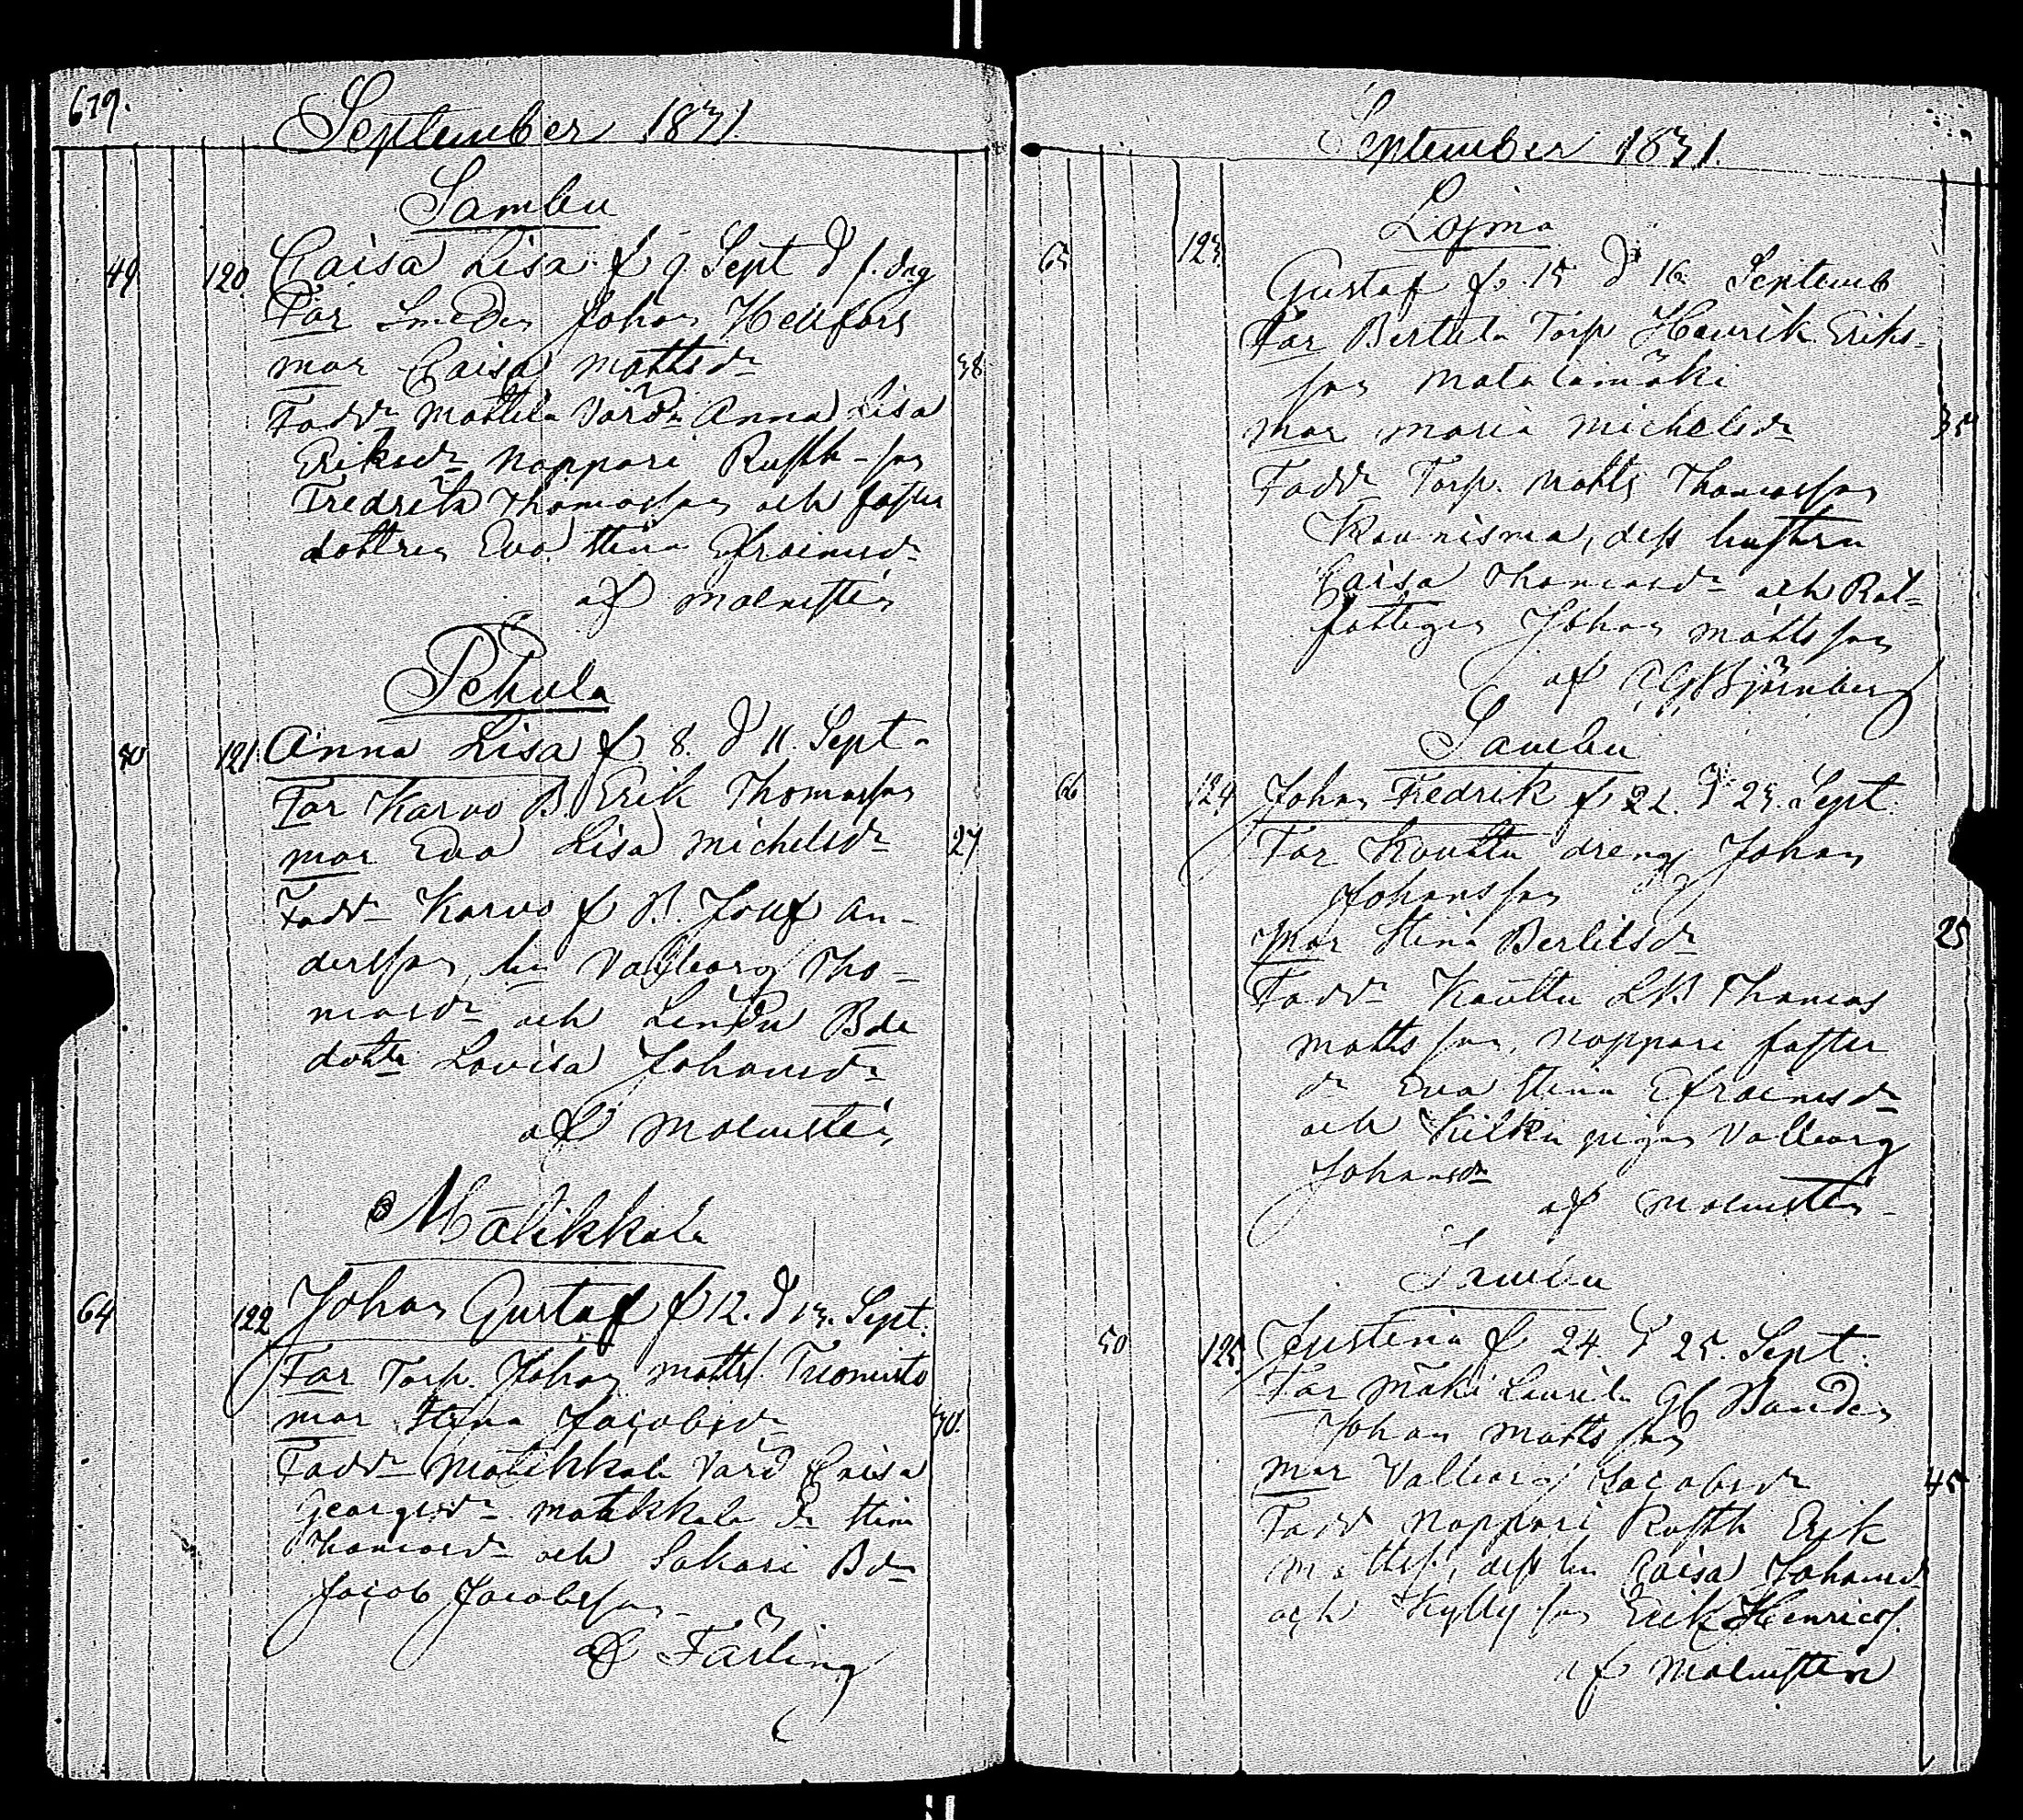 679.
September 1831.
Sambu
49 120 Caisa Lisa f 9. Sept d s. dag
Far Smeden Johan Hellfors
mor Caisa Mattsdr 38
Faddr Mattila Värdn Anna Lisa
Eriksdr Noppari Rusth-son
Fredrik Thomasson och foster
dottren Eva Stina Efraimsdr
af Molmstén
Pehula
50 121. Anna Lisa f 8. d 11. Sept.
Far Karvo B. Erik Thomasson
mor Eva Lisa Michelsdr 27
Faddr Karvo f B. Josef An-
dersson, hu Valborg Tho-
masdr och Lendu Bde
dottr Lovisa Johansdr
af Molmstén
Mälikkälä
64 122 Johan Gustaf f 12. d 13. Sept.
Far Torp. Johan Matts. Tuomisto
mor Stina Jacobsdr 30.
Faddr Mälikkälä Värd Caisa
Georgsdr Mälikkälä dr Stina
Thomasdr och Sakari Bdn
Jacob Jacobsson
af Färling
September 1831.
Lojmo
65 123. Gustaf f. 15 d 16 Septemb
Far Bertula Torp Henrik Eriks-
son Matalamäki
mor Maria Michelsdr 35
Faddr Torp. Matts Thomasson
Kaunisma, dess hustru
Caisa Thomasdr och Rot-
fattigen Johan Mattsson
af Björnberg
Sambu
66 124 Johan Fredrik f 22. d 23. Sept.
Far Kouttu dreng Johan
Johansson
Mor Stina Bertilsdr 25
Faddr Kouttu LB Thomas
Mattsson, Noppari foster
dr Eva Stina Efraimsdr
och Kilku pigan Valborg
Johansdr
af Molmstén
Sambu
50 125. Justina f 24 d 25. Sept.
Far Mäki Laurila Gl Bonden
Johan Mattsson
mor Valborg Jacobsdr 45
Fadd Noppari Rusth Erik
Mattss, dess hu Caisa Johansd
och Kylly son Erik Henrics.
af Molmstén